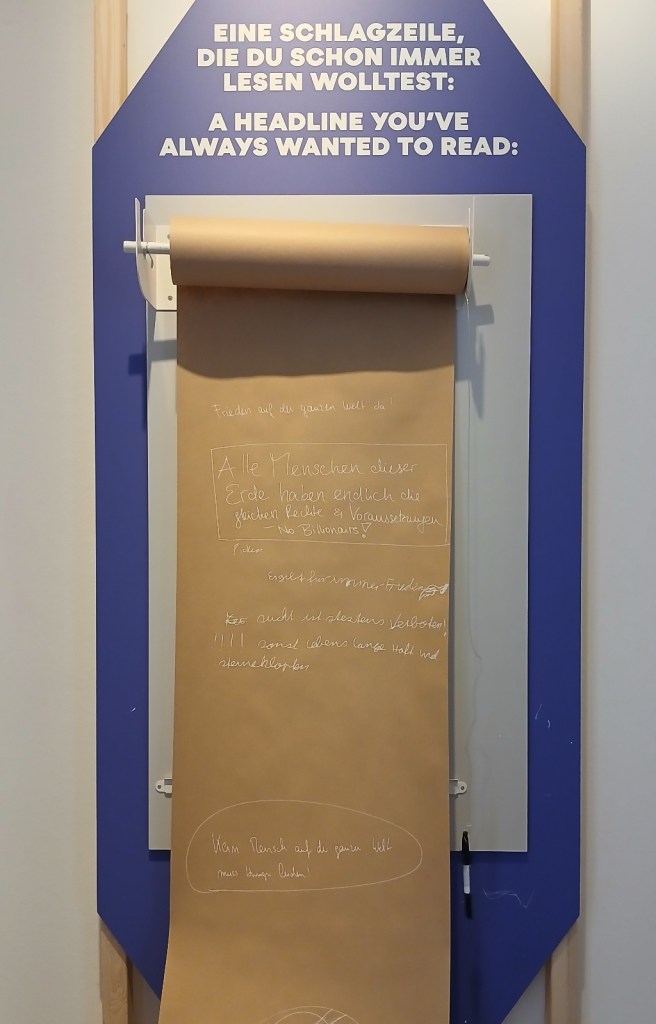 EINE SCHLAGZEILE,
DIE DU SCHON IMMER
LESEN WOLLTEST:
A HEADLINE YOU'VE
ALWAYS WANTED TO READ:
Frieden auf der ganzen Welt da!
Alle Menschen dieser
Erde haben endlich die
gleichen Rechte & Voraussetzungen
- No Billionairs!
Es gibt für immer Frieden
sucht ist stestens Verboten!
!!!! sonst lebens lange Haft und
steineklopfen
Kein Mensch auf der ganzen Welt
muss Hunger leiden!